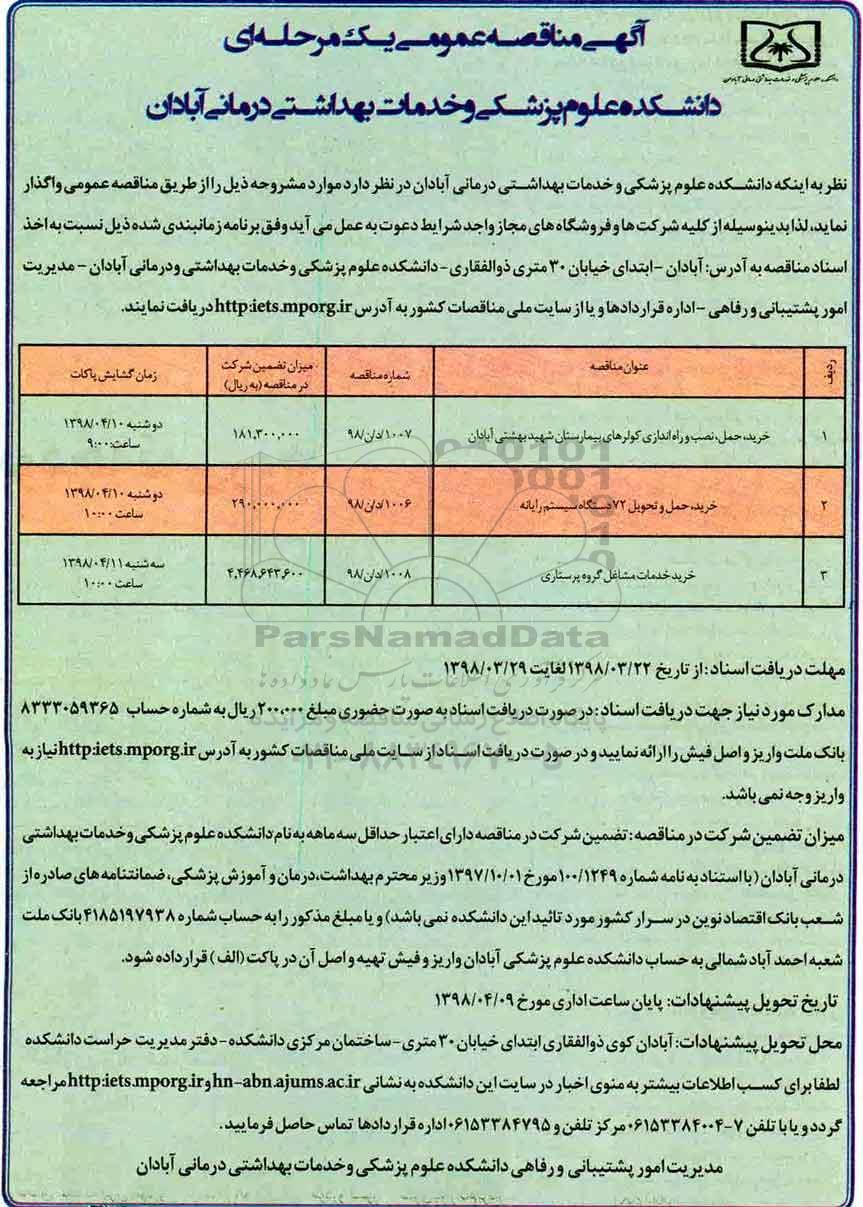 آگهی مناقصه عمومی یک مرحله‌ای
دانشکده علوم پزشکی و خدمات بهداشتی درمانی آبادان
نظر به اینکه دانشکده علوم پزشکی و خدمات بهداشتی درمانی آبادان در نظر دارد موارد مشروحه ذیل را از طریق مناقصه عمومی واگذار
نماید، لذا بدینوسیله از کلیه شرکت ها و فروشگاه های مجاز واجد شرایط دعوت به عمل می آید وفق برنامه زمانبندی شده ذیل نسبت به اخذ
اسناد مناقصه به آدرس: آبادان – ابتدای خیابان ۳۰ متری ذوالفقاری - دانشکده علوم پزشکی و خدمات بهداشتی و درمانی آبادان – مدیریت
امور پشتیبانی و رفاهی – اداره قراردادها و یا از سایت ملی مناقصات کشور به آدرس http:iets.mporg.ir دریافت نمایند.
ردیف عنوان مناقصه شماره مناقصه میزان تضمین شرکت در مناقصه (به ریال) زمان گشایش پاکات
۱ خرید، حمل، نصب و راه اندازی کولرهای بیمارستان شهید بهشتی آبادان ۱۰۰۷/د/ن/۹۸ ۱۸۱,۳۰۰,۰۰۰ دوشنبه ۱۳۹۸/۰۴/۱۰ ساعت: ۹:۰۰
۲ خرید، حمل و تحویل ۷۲ دستگاه سیستم رایانه ۱۰۰۶/د/ن/۹۸ ۲۹۰,۰۰۰,۰۰۰ دوشنبه ۱۳۹۸/۰۴/۱۰ ساعت ۱۰:۰۰
۳ خرید خدمات مشاغل گروه پرستاری ۱۰۰۸/د/ن/۹۸ ۴,۴۶۸,۶۴۳,۶۰۰ سه شنبه ۱۳۹۸/۰۴/۱۱ ساعت ۱۰:۰۰
ParsNamadData
مهلت دریافت اسناد: از تاریخ ۱۳۹۸/۰۳/۲۲ لغایت ۱۳۹۸/۰۳/۲۹
مدارک مورد نیاز جهت دریافت اسناد: در صورت دریافت اسناد به صورت حضوری مبلغ ۲۰۰,۰۰۰ ریال به شماره حساب ۸۳۳۳۰۵۹۳۶۵
بانک ملت واریز و اصل فیش را ارائه نمایید و در صورت دریافت اسناد از سایت ملی مناقصات کشور به آدرس http:iets.mporg.ir نیاز به
واریز وجه نمی باشد.
میزان تضمین شرکت در مناقصه: تضمین شرکت در مناقصه دارای اعتبار حداقل سه ماهه به نام دانشکده علوم پزشکی و خدمات بهداشتی
درمانی آبادان (با استناد به نامه شماره ۱۰۰/۱۲۴۹ مورخ ۱۳۹۷/۱۰/۰۱ وزیر محترم بهداشت، درمان و آموزش پزشکی، ضمانتنامه های صادره از
شعب بانک اقتصاد نوین در سرار کشور مورد تائید این دانشکده نمی باشد) و یا مبلغ مذکور را به حساب شماره ۴۱۸۵۱۹۷۹۳۸ بانک ملت
شعبه احمد آباد شمالی به حساب دانشکده علوم پزشکی آبادان واریز و فیش تهیه و اصل آن در پاکت (الف) قرار داده شود.
تاریخ تحویل پیشنهادات: پایان ساعت اداری مورخ ۱۳۹۸/۰۴/۰۹
محل تحویل پیشنهادات: آبادان کوی ذوالفقاری ابتدای خیابان ۳۰ متری – ساختمان مرکزی دانشکده - دفتر مدیریت حراست دانشکده
لطفا برای کسب اطلاعات بیشتر به منوی اخبار در سایت این دانشکده به نشانی hn-abn.ajums.ac.ir و http:iets.mporg.ir مراجعه
گردد و یا با تلفن ۷-۰۶۱۵۳۳۸۴۰۰۴ مرکز تلفن و ۰۶۱۵۳۳۸۴۷۹۵ اداره قراردادها تماس حاصل فرمایید.
مدیریت امور پشتیبانی و رفاهی دانشکده علوم پزشکی و خدمات بهداشتی درمانی آبادان